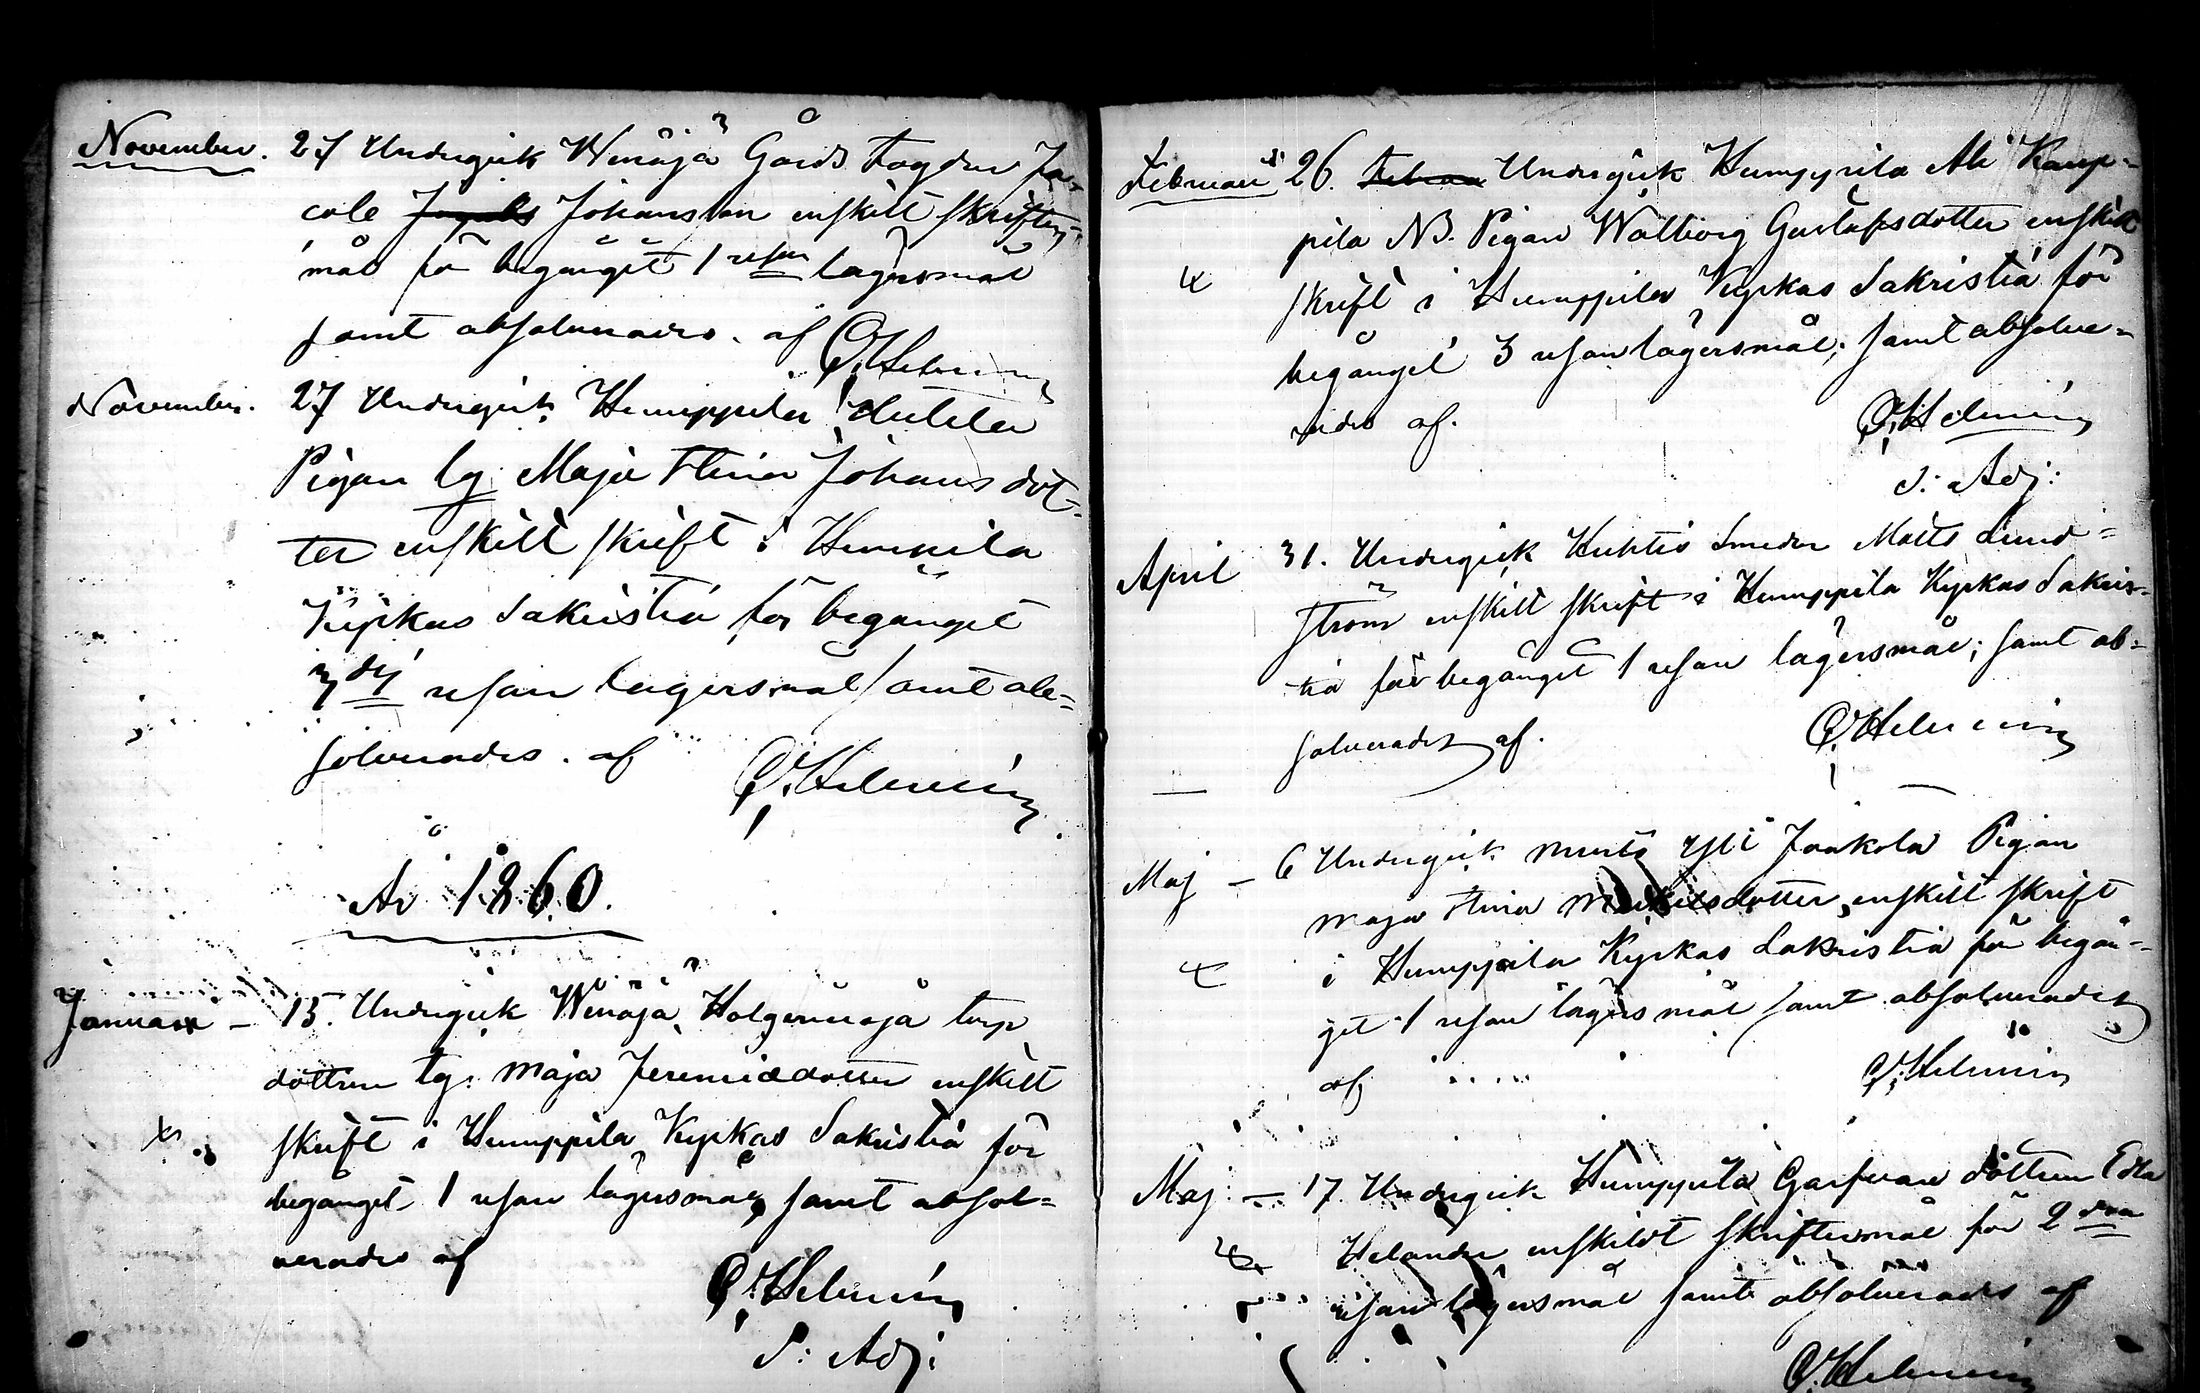 November. 27 Undergick Wenäjä Gårds Fogden Ja=
cob Johansson enskilt skrifter=
mål för begånget 1 resan lägersmål
samt absolverades. af O. Helenius
November. 27 Undergick Humppila
Pigan lg. Maja Stina Johansdot=
ter enskilt skrift i Humpila
Kyrkas Sakristia för begånget
3dj resan lägersmål samt ab=
solverades. af O. Helenius
År 1860.
Januari – 15. Undergick Wenäjä torp
dottren lg. Maja Jeremiædotter enskilt
skrift i Humppila Kyrkas Sakristia för
begånget 1 resan lägersmål, samt absol=
verades af
O. Helenius
S: Adj:
Februari 26. Undergick Humppila Ali Kamp=
pila NB. Pigan Walborg Gustafsdotter enskilt
skrift i Humppila Kyrkas Sakristia för
begånget 3 resan lägersmål; samt absolve=
rades af. O. Helenius
S: Adj:
April 31. Undergick Huhtis Smeden Matts Lind=
ström enskilt skrift i Humppila Kyrkas Sakris=
tia för begånget 1 resan lägersmål; samt ab=
solverades af. O. Helenius
Maj – 6 Undergick Yli Jaakola Pigan
Maja Stina enskilt skrift
i Humppila Kyrkas Sakristia för begån=
get 1 resan lägersmål samt absolverades
af O. Helenius
Maj – 17. Undergick Humppila dottren Edla
Helander enskildt skriftermål för 2dra
resan lägersmål samt absolverades af
O. Helenius